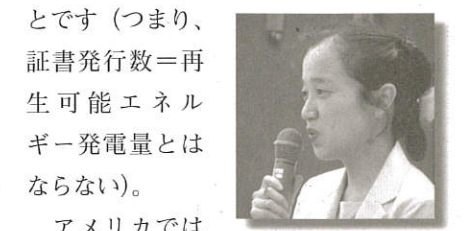 とです（つまり、
証書発行数＝再
生可能エネル
ギー発電量とは
ならない）。
アメリカでは